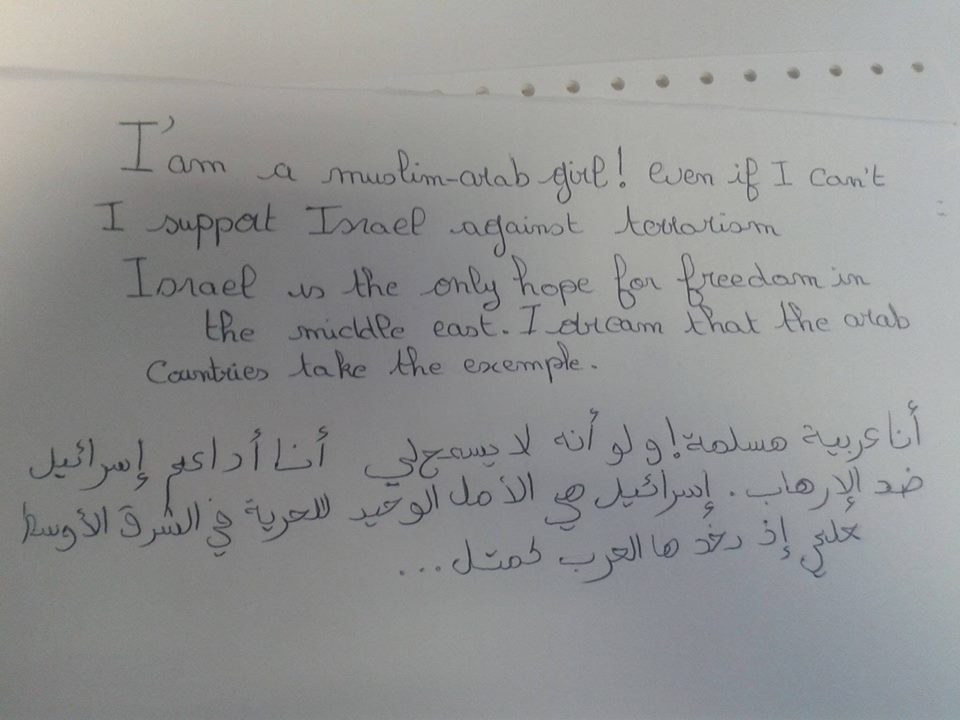 I'am a muslim-arab girl! even if I can't
I support Israel against terrorism
Israel is the only hope for freedom in
the middle east. I dream that the arab
Countries take the exemple.
أنا عربية مسلمة! ولو أنه لا يسمح لي أنا أداعم إسرائيل
ضد الإرهاب. إسرائيل هي الأمل الوحيد للحرية في الشرق الأوسط
حلمي إذ العرب كمتل...